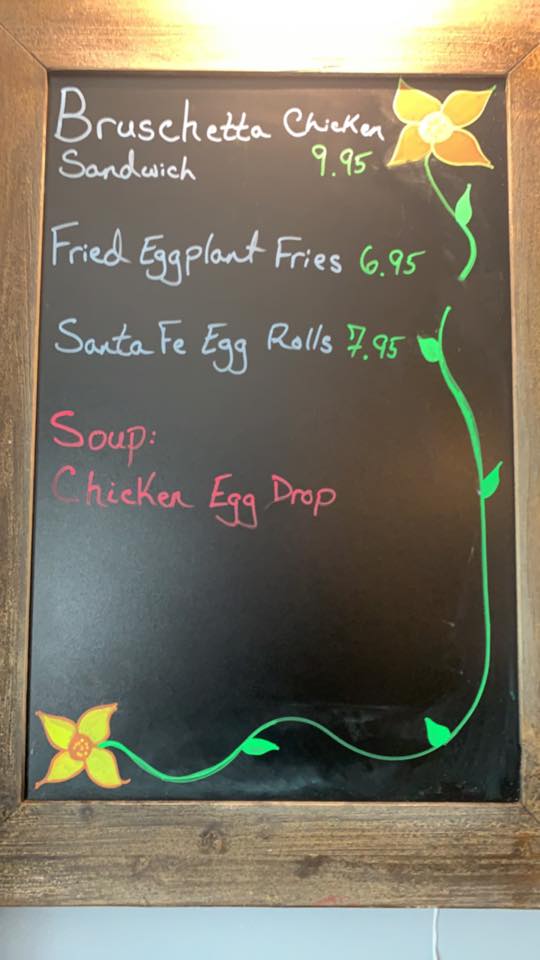 Bruschetta Chicken
Sandwich 9.95
Fried Eggplant Fries 6.95
Santa Fe Egg Rolls 7.95
Soup:
Chicken Egg Drop